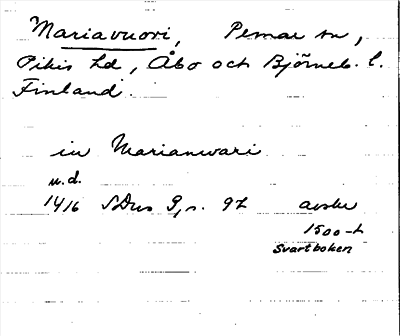 Mariavuori, Pemar sn,
Pikis hd, Åbo och Björneb. l.
Finland.
in Marianwari
u.d.
1416 SDns 3, s. 97 avskr
1500-t
Svartboken